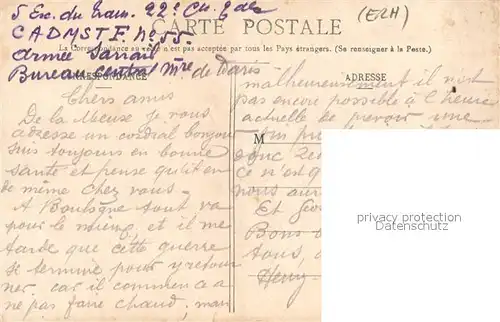 5 Esc. du Train. 22e Cie
CARTE POSTALE
(ERH)
CADMSTF. No 55.
La Correspondance au verso n'est pas acceptée par tous les Pays étrangers. (Se renseigner à la Poste.)
Armée Sarrail
Bureau Central Mre de Paris
CORRESPONDANCE
ADRESSE
Chers amis
De la Meuse je vous
adresse un cordial bonjour
suis toujours en bonne
santé et pense qu'il en
de même chez vous
A Boulogne tout va
pour le mieux, et il me
tarde que cette guerre
se termine pour y retour
ner. car il commence à
ne pas faire chaud, mais
malheureusement il n'est
pas encore possible à l'heure
actuelle de prévoir une
M
donc
ce n'est
nous
Et
Bons
tous,
Henry
privacy protection
Datenschutz